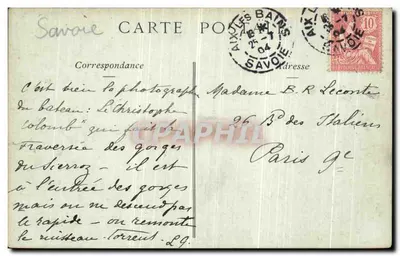 Savoie
CARTE POSTALE
AIX LES BAINS
25-7
04
SAVOIE
10
Correspondance
Adresse
c'est bien la photographie
du bateau : Le Christophe
Colomb" qui fait la
traversée des gorges
du Sierroz - il est
à l'entrée des gorges
mais on ne descend pas
le rapide - on remonte
le ruisseau-torrent
Madame B. R. Leconte
26 Bd des Italiens
Paris 9e